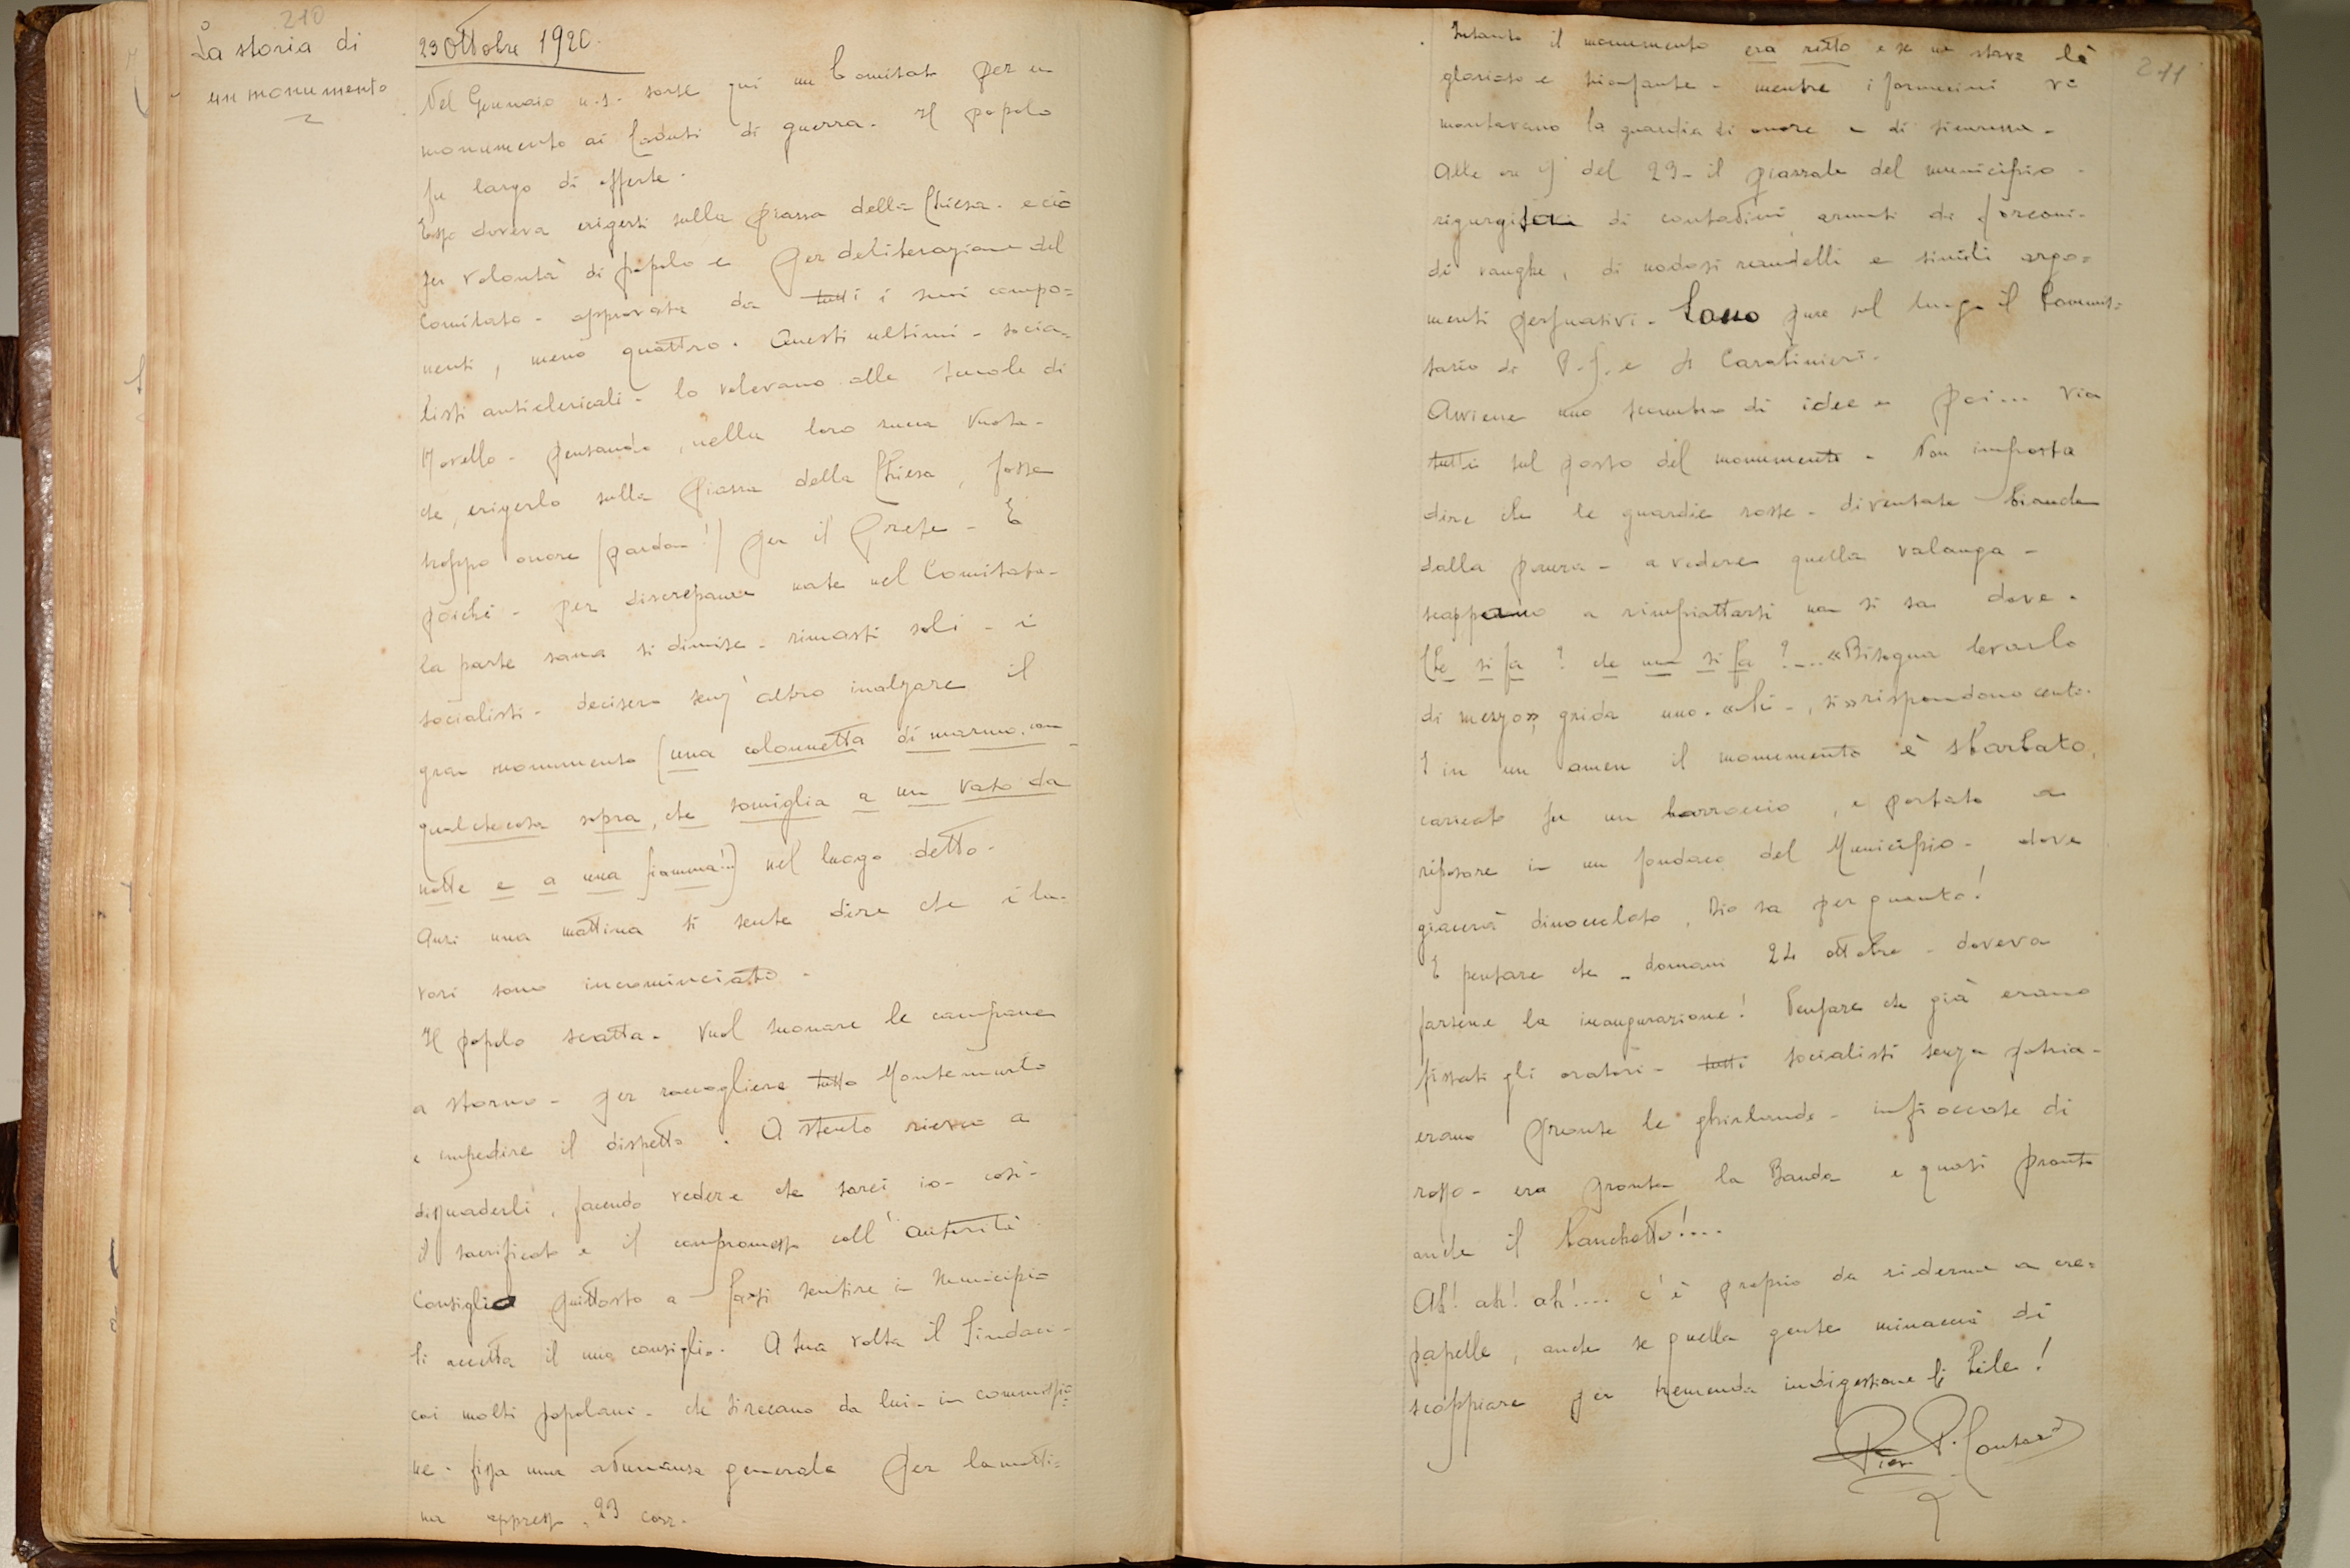 210
La storia di
un monumento
23 Ottobre 1920.
Nel Gennaio u.s. sorse qui un Comitato per un
monumento ai Caduti di guerra. Il popolo
fu largo di offerte.
Esso doveva erigersi sulla piazza della Chiesa. e ciò
per volontà di popolo e per deliberazione del
Comitato - approvata da tutti i suoi compo=
nenti, meno quattro. Questi ultimi - socia=
listi anticlericali - lo volevano alle scuole di
Morello - pensando, nella loro zucca vuota -
che, erigerlo sulla piazza della Chiesa, fosse
troppo onore (pardon!) per il Prete - E
poiché - per discrepanze nate nel Comitato -
la parte sana si dimise - rimasti soli - i
socialisti - decisero senz'altro inalzare il
gran monumento (una colonnetta di marmo, con
qualchecosa sopra, che somiglia a un vaso da
notte e a una fiamma!..) nel luogo detto.
Anzi una mattina si sente dire che i la-
vori sono incominciati -
Il popolo scatta. Vuol suonare le campane
a stormo - per raccogliere tutto Montemurlo
e impedire il dispetto. A stento riesco a
dissuaderli, facendo vedere che sarei io - così -
il sacrificato e il compromesso coll'autorità
Consiglio piuttosto a farsi sentire in Municipio
Si accetta il mio consiglio. A sua volta il Sindaco -
coi molti popolani - che si recano da lui - in commissio=
ne - fissa una adunanza generale per la matti=
na appresso, 23 corr.
211
Intanto il monumento era ritto e se ne stava là
glorioso e trionfante - mentre i fornacini vi
montavano la guardia di onore e di sicurezza -
Alle ore 9 del 23 - il piazzale del municipio -
rigurgita di contadini armati di forconi -
di vanghe, di nodosi randelli e simili argo=
menti persuasivi. Sono pure sul luogo il Commis=
sario di P.S. e Carabinieri -
Avviene uno scambio di idee e poi... via
tutti sul posto del monumento - Non importa
dire che le guardie rosse - diventate bianche
dalla paura - a vedere quella valanga -
scappano a rimpiattarsi non si sa dove.
Che si fa? che non si fa?... «Bisogna levarlo
di mezzo» grida uno. «Sì - , sì» rispondono cento.
E in un amen il monumento è sbarbato,
caricato su un barroccio, e portato a
riposare in un fondaco del Municipio - dove
giacerà dinoccolato, Dio sa per quanto!
E pensare che - domani 24 ottobre - doveva
farsene la inaugurazione! Pensare che già erano
fissati gli oratori - tutti socialisti senza patria -
erano pronte le ghirlande - infioccate di
rosso - era pronta la Banda e quasi pronto
anche il banchetto!...
Ah! ah! ah!.... c'è proprio da riderne a cre=
papelle, anche se quella gente minaccia di
scoppiare per tremenda indigestione di bile!
Pier P.